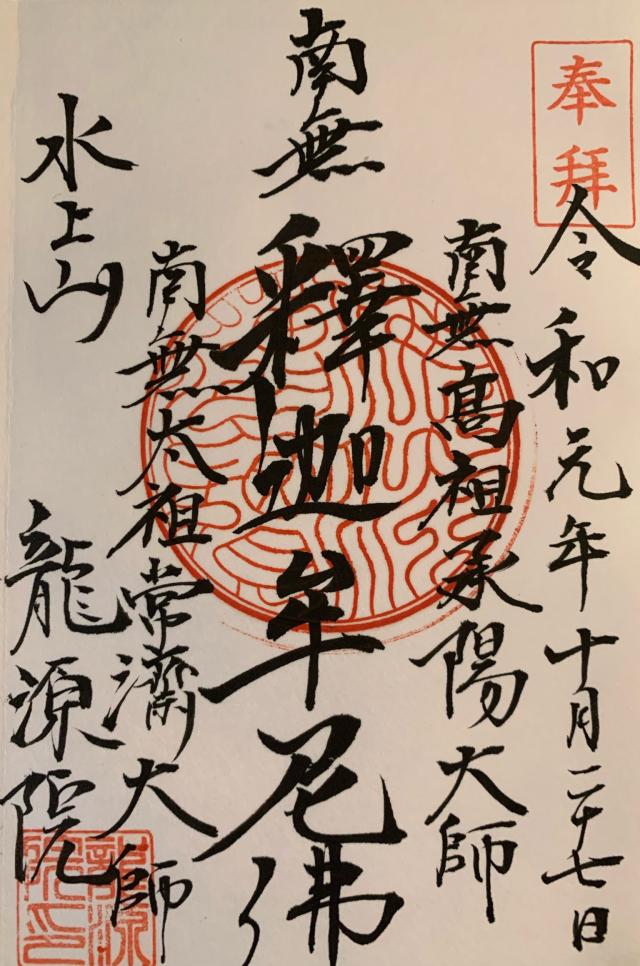 奉拜
令和元年十月二十七日
南無高祖承陽大師
南無釋迦牟尼佛
南無太祖常濟大師
水上山
龍源院
龍源院印